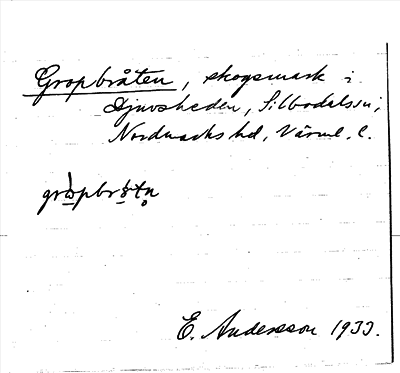 Gropbråten, skogsmark i
Djuvsheden, Silbodals sn,
Nordmarks hd, Värml. l.
gròpbrötn̥
E. Andersson 1933.